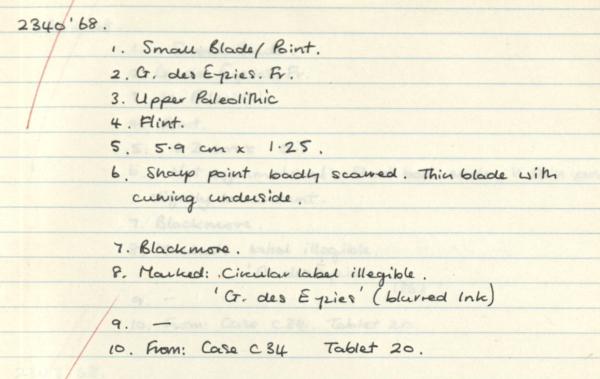 2340'68.
1. Small Blade/Point.
2. G. des Eyzies. Fr.
3. Upper Paleolithic
4. Flint.
5. 5.9 cm x 1.25.
6. Sharp point badly scarred. Thin blade with
curving underside.
7. Blackmore.
8. Marked: Circular label illegible.
'G. des Eyzies' (blurred Ink)
9. —
10. From: Case C34 Tablet 20.